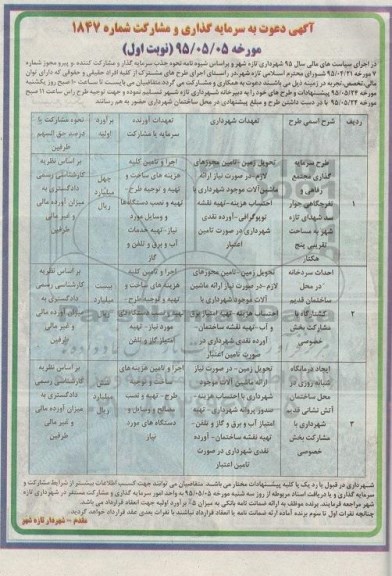 آگهی دعوت به سرمایه گذاری و مشارکت شماره ۱۸۴۷
مورخه ۹۵/۰۵/۰۵ (نوبت اول)
در اجرای سیاست های مالی سال ۹۵ شهرداری تازه شهر و براساس شیوه نامه نحوه جذب سرمایه گذار و مشارکت کننده و پیرو مجوز شماره
۷ مورخه ۹۵/۰۴/۲۱ شورای محترم اسلامی تازه شهر، در راستای اجرای طرح های مشترک از کلیه افراد حقیقی و حقوقی که دارای توان
مالی، تخصص، تجربه در زمینه ذیل می باشند دعوت به همکاری و مشارکت می گردد متقاضیان می بایست تا ساعت ۱۰ صبح روز یکشنبه
مورخه ۹۵/۰۵/۲۴ پیشنهادات و طرح های خود را به دبیرخانه شهرداری تازه شهر تسلیم نموده و جهت توجیه طرح راس ساعت ۱۱ صبح
مورخه ۹۵/۰۵/۲۴ با در دست داشتن طرح و مبلغ پیشنهادی در محل ساختمان شهرداری حضور به هم رسانند
ردیف
شرح اسمی طرح
تعهدات شهرداری
تعهدات آورنده سرمایه یا مشارکت
برآورد اولیه
نحوه مشارکت یا درصد حق السهم طرفین
۱
طرح سرمایه گذاری مجتمع رفاهی و تفرجگاهی جوار سد شهدای تازه شهر به مساحت تقریبی پنج هکتار
تحویل زمین -تامین مجوزهای لازم-در صورت نیاز ارائه ماشین آلات موجود شهرداری با احتساب هزینه-تهیه نقشه توپوگرافی -آورده نقدی شهرداری در صورت تامین اعتبار
اجرا و تامین کلیه هزینه های ساخت و تهیه و توجیه طرح- تهیه و نصب دستگاه‌ها و وسایل مورد نیاز -تهیه خدمات آب و برق و تلفن و گاز
چهل میلیارد ریال
بر اساس نظریه کارشناسی رسمی دادگستری به میزان آورده مالی و غیر مالی طرفین
۲
احداث سردخانه در محل ساختمان قدیم کشتارگاه با مشارکت بخش خصوصی
تحویل زمین -تامین مجوزهای لازم -در صورت نیاز ارائه ماشین آلات موجود شهرداری با احتساب هزینه -تهیه امتیاز برق و آب -تهیه نقشه ساختمان- آورده نقدی شهرداری در صورت تامین اعتبار
اجرا و تامین کلیه هزینه های ساخت و تهیه و توجیه طرح- تهیه و نصب دستگاه‌های مورد نیاز- تهیه امتیاز گاز و تلفن
بیست میلیارد ریال
بر اساس نظریه کارشناسی رسمی دادگستری به میزان آورده مالی و غیر مالی طرفین
۳
ایجاد درمانگاه شبانه روزی در محل ساختمان آتش نشانی قدیم شهرداری با مشارکت بخش خصوصی
تحویل زمین - در صورت نیاز ارائه ماشین آلات موجود شهرداری با احتساب هزینه- صدور پروانه شهرداری - تهیه امتیاز آب و برق و گاز و تلفن- تهیه نقشه ساختمان - آورده نقدی شهرداری در صورت تامین اعتبار
اجرا و تامین هزینه های ساخت و توجیه طرح- تهیه و نصب مصالح و وسایل و دستگاه های مورد نیاز
میلیارد ریال
بر اساس نظریه کارشناسی رسمی دادگستری به میزان آورده مالی و غیر مالی طرفین
شهرداری در قبول یا رد یک یا کلیه پیشنهادات مختار می باشد. متقاضیان می توانند جهت کسب اطلاعات بیشتر از شرایط مشارکت و
سرمایه گذاری و یا دریافت اسناد مربوطه از روز سه شنبه مورخه ۹۵/۰۵/۰۵ به واحد امور سرمایه گذاری و مشارکت مستقر در شهرداری تازه
شهر مراجعه فرمایند. برنده موظف به ارائه ضمانت نامه بانکی به میزان ۵٪ برآورد اولیه جهت انعقاد قرارداد می باشد.
چنانچه نفرات اول تا سوم برنده آماده ارئه ضمانت نامه یا انعقاد قرارداد نباشند با نفرات بعدی عقد قرارداد خواهد گردید.
مقدم - شهردار تازه شهر